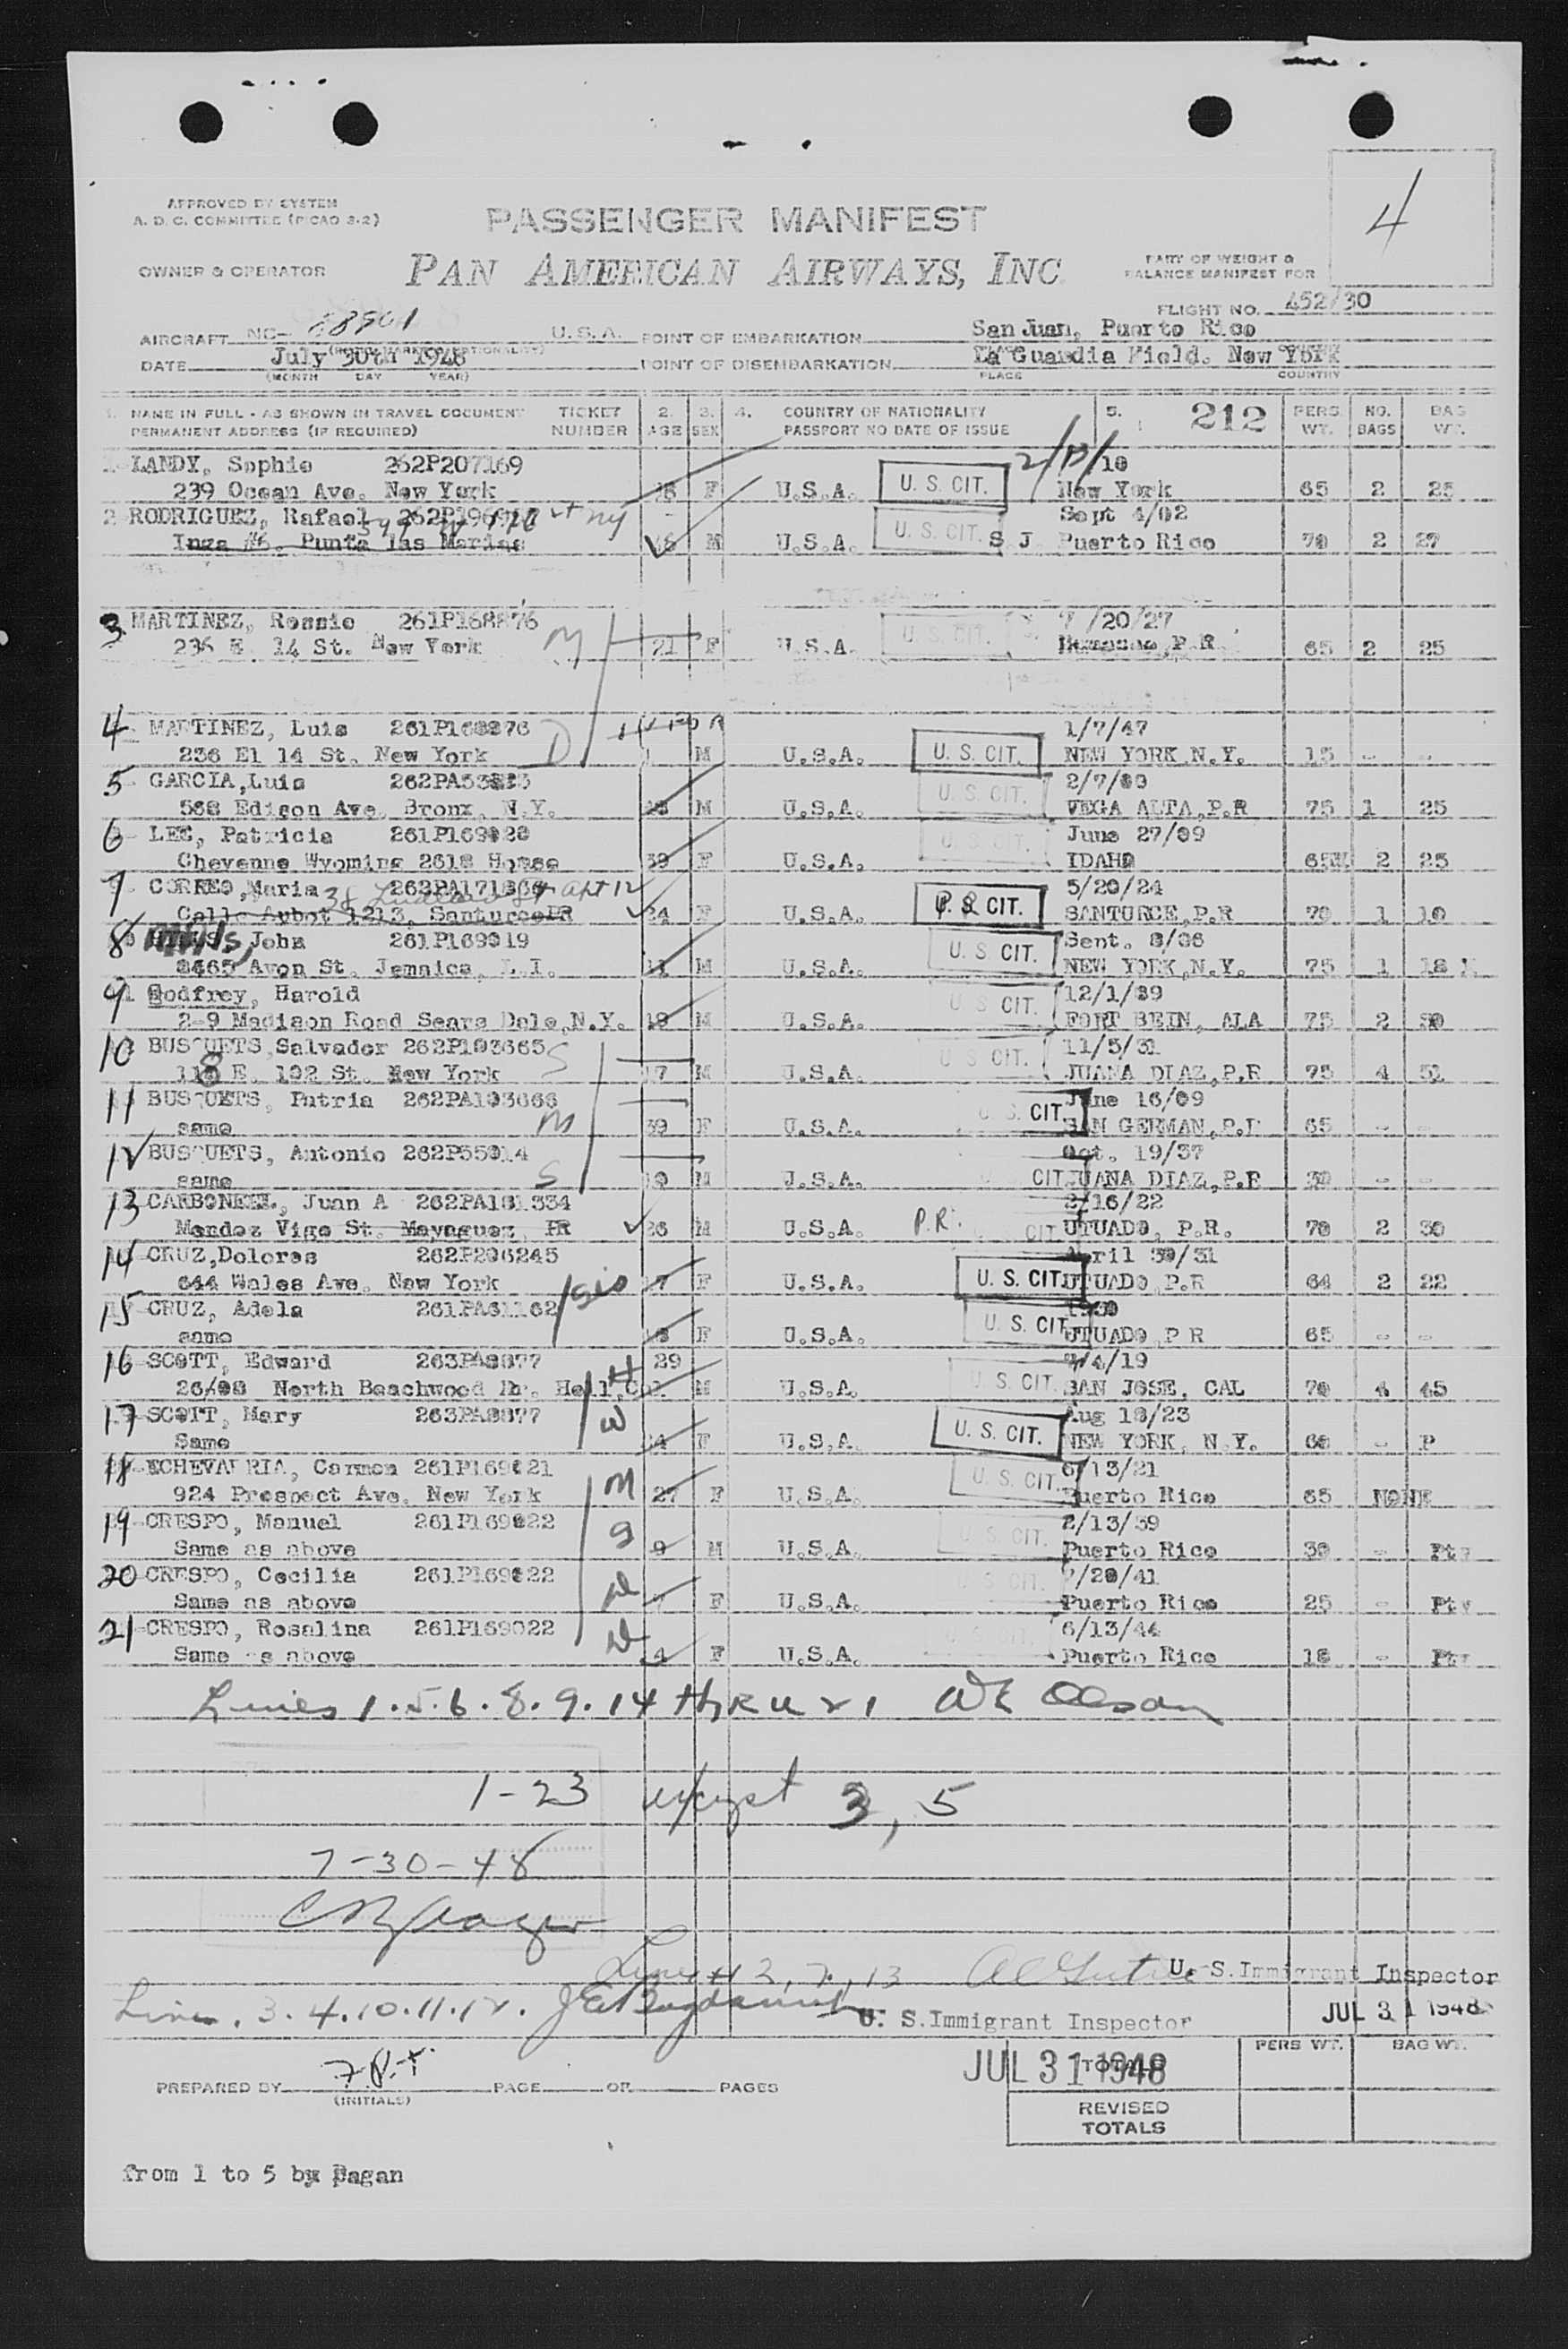 4
APPROVED BY SYSTEM
A. D. C. COMMITTEE (PICAO 3-2)
PASSENGER MANIFEST
OWNER & OPERATOR PAN AMERICAN AIRWAYS, INC. PART OF WEIGHT & BALANCE MANIFEST FOR
FLIGHT NO. 452/30
AIRCRAFT NC- 88901 U.S.A. POINT OF EMBARKATION San Juan, Puerto Rico
DATE July 30th 1948 POINT OF DISEMBARKATION La Guardia Field. New York
(MONTH DAY YEAR) PLACE COUNTRY
1. NAME IN FULL - AS SHOWN IN TRAVEL DOCUMENT TICKET 2. 3. 4. COUNTRY OF NATIONALITY 5. 212 PERS. NO. BAG
PERMANENT ADDRESS (IF REQUIRED) NUMBER AGE SEX PASSPORT NO DATE OF ISSUE WT. BAGS WT.
1 LANDY, Sophie 262P207169 2/13/10
239 Ocean Ave. New York F U.S.A. U. S. CIT. New York 65 2 25
2 RODRIGUEZ, Rafael Sept 4/02
Inga #6, Punta las Marias M U.S.A. U. S. CIT. S J Puerto Rico 70 2 27
3 MARTINEZ, Rossie 261P168876 7/20/27
236 E 14 St. New York M 21 F U.S.A. U. S. CIT. Humacao, P.R. 65 2 25
4 MARTINEZ, Luis 261P168876 1/7/47
236 El 14 St. New York D M U.S.A. U. S. CIT. NEW YORK N.Y. 15 - -
5 GARCIA, Luis 2/7/09
568 Edison Ave. Bronx, N.Y. M U.S.A. U. S. CIT. VEGA ALTA, P.R 75 1 25
6 LEE, Patricia 261P169020 June 27/09
Cheyenne Wyoming 2618 House 39 F U.S.A. U. S. CIT. IDAHO 65 2 25
7 CORREO, Maria 38 Ludlow St Apt 12 5/20/24
Calle Aubot 1213, Santurce PR 24 F U.S.A. P. R. CIT. SANTURCE, P.R 70 1 10
8 John 261P169019 Sept. 8/06
8465 Avon St. Jamaica, L.I. M U.S.A. U. S. CIT. NEW YORK, N.Y. 75 1 18
9 Godfrey, Harold 12/1/29
2-9 Madison Road Scars Dale, N.Y. M U.S.A. U. S. CIT. FORT BEIN, ALA 75 2
10 BUSQUETS, Salvador 262P103665 S 11/5/31
118 E. 102 St. New York 17 M U.S.A. U. S. CIT. JUANA DIAZ, P.R 75 4 51
11 BUSQUETS, Patria 262PA103666 June 16/09
same M 39 F U.S.A. U. S. CIT. SAN GERMAN, P.R 65 - -
12 BUSQUETS, Antonio 262P55014 Oct. 19/37
same S 10 M U.S.A. CIT. JUANA DIAZ, P.R 30 - -
13 CARBONELL, Juan A 262PA181334 2/16/22
Mendez Vigo St. Mayaguez, PR 26 M U.S.A. P.R. CIT UTUADO, P.R. 70 2 30
14 CRUZ, Dolores 262P206245 April 30/31
644 Wales Ave. New York 17 F U.S.A. U. S. CIT. UTUADO, P.R 64 2 22
15 CRUZ, Adela 261PA61162 sis 1930
same F U.S.A. U. S. CIT. UTUADO, P R 65 - -
16 SCOTT, Edward 263PA8877 29 7/4/19
North Beachwood Dr. Holl. Cal. H M U.S.A. U. S. CIT. SAN JOSE, CAL 70 4 45
17 SCOTT, Mary 263PA8877 Aug 18/23
Same W 24 F U.S.A. U. S. CIT. NEW YORK, N.Y. 68 - P
18 ECHEVARRIA, Carmen 261P169021 6/13/21
924 Prospect Ave. New York M 27 F U.S.A. U. S. CIT. Puerto Rico 65 NONE
19 CRESPO, Manuel 261P169022 2/13/39
Same as above S 9 M U.S.A. U. S. CIT. Puerto Rico 30 -
20 CRESPO, Cecilia 261P169022 /20/41
Same as above D 7 F U.S.A. U. S. CIT. Puerto Rico 25 -
21 CRESPO, Rosalina 261P169022 6/13/44
Same as above D 4 F U.S.A. U. S. CIT. Puerto Rico 18 -
Lines 1.5.6.8.9.14 thru 21 WE Olson
1-23 except 3, 5
7-30-48
Lines 2, 7, 13 U. S. Immigrant Inspector
Lines. 3.4.10.11.12. U. S. Immigrant Inspector JUL 31 1948
PERS WT. BAG WT.
JUL 31 1948 TOTALS
PREPARED BY (INITIALS) PAGE OF PAGES
REVISED TOTALS
from 1 to 5 by Pagan